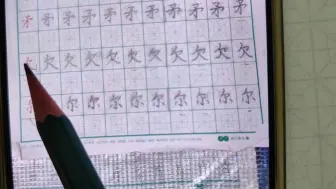 矛 矛 矛 矛 矛 矛 矛 矛 矛 矛
欠 欠 欠 欠 欠 欠 欠 欠 欠 欠
尔 尔 尔 尔 尔 尔 尔 尔 尔